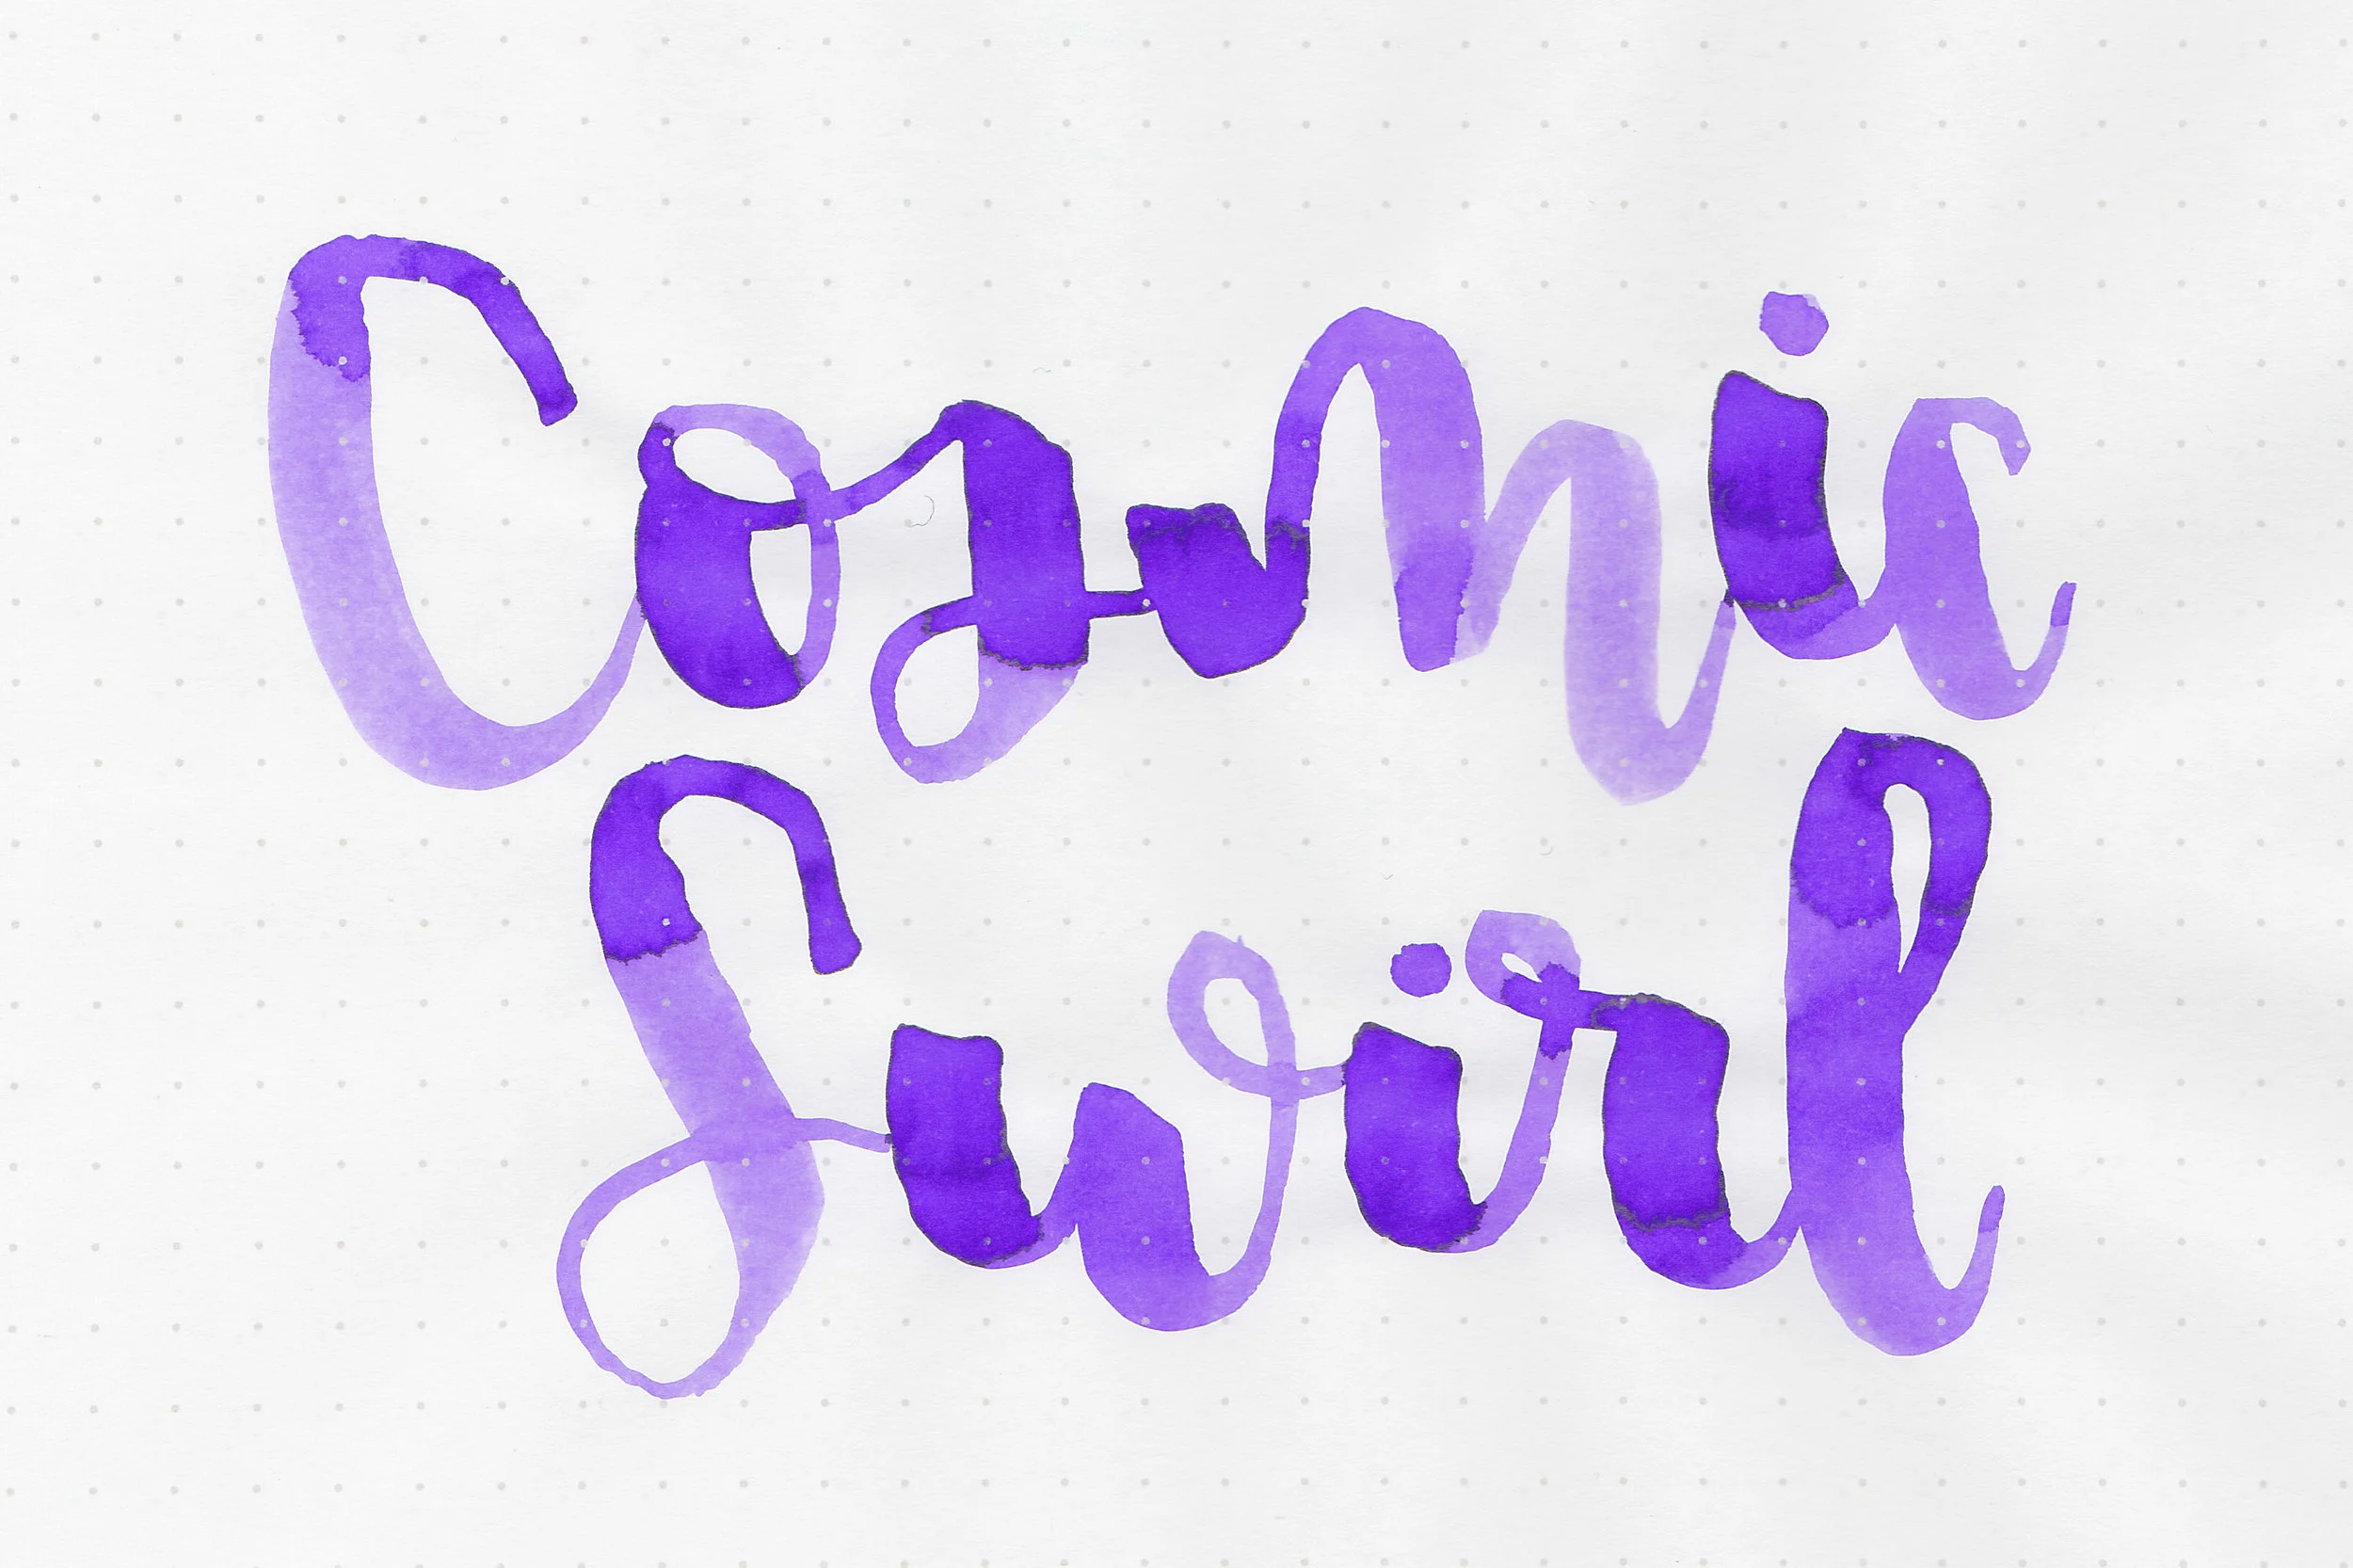 Cosmic
Swirl